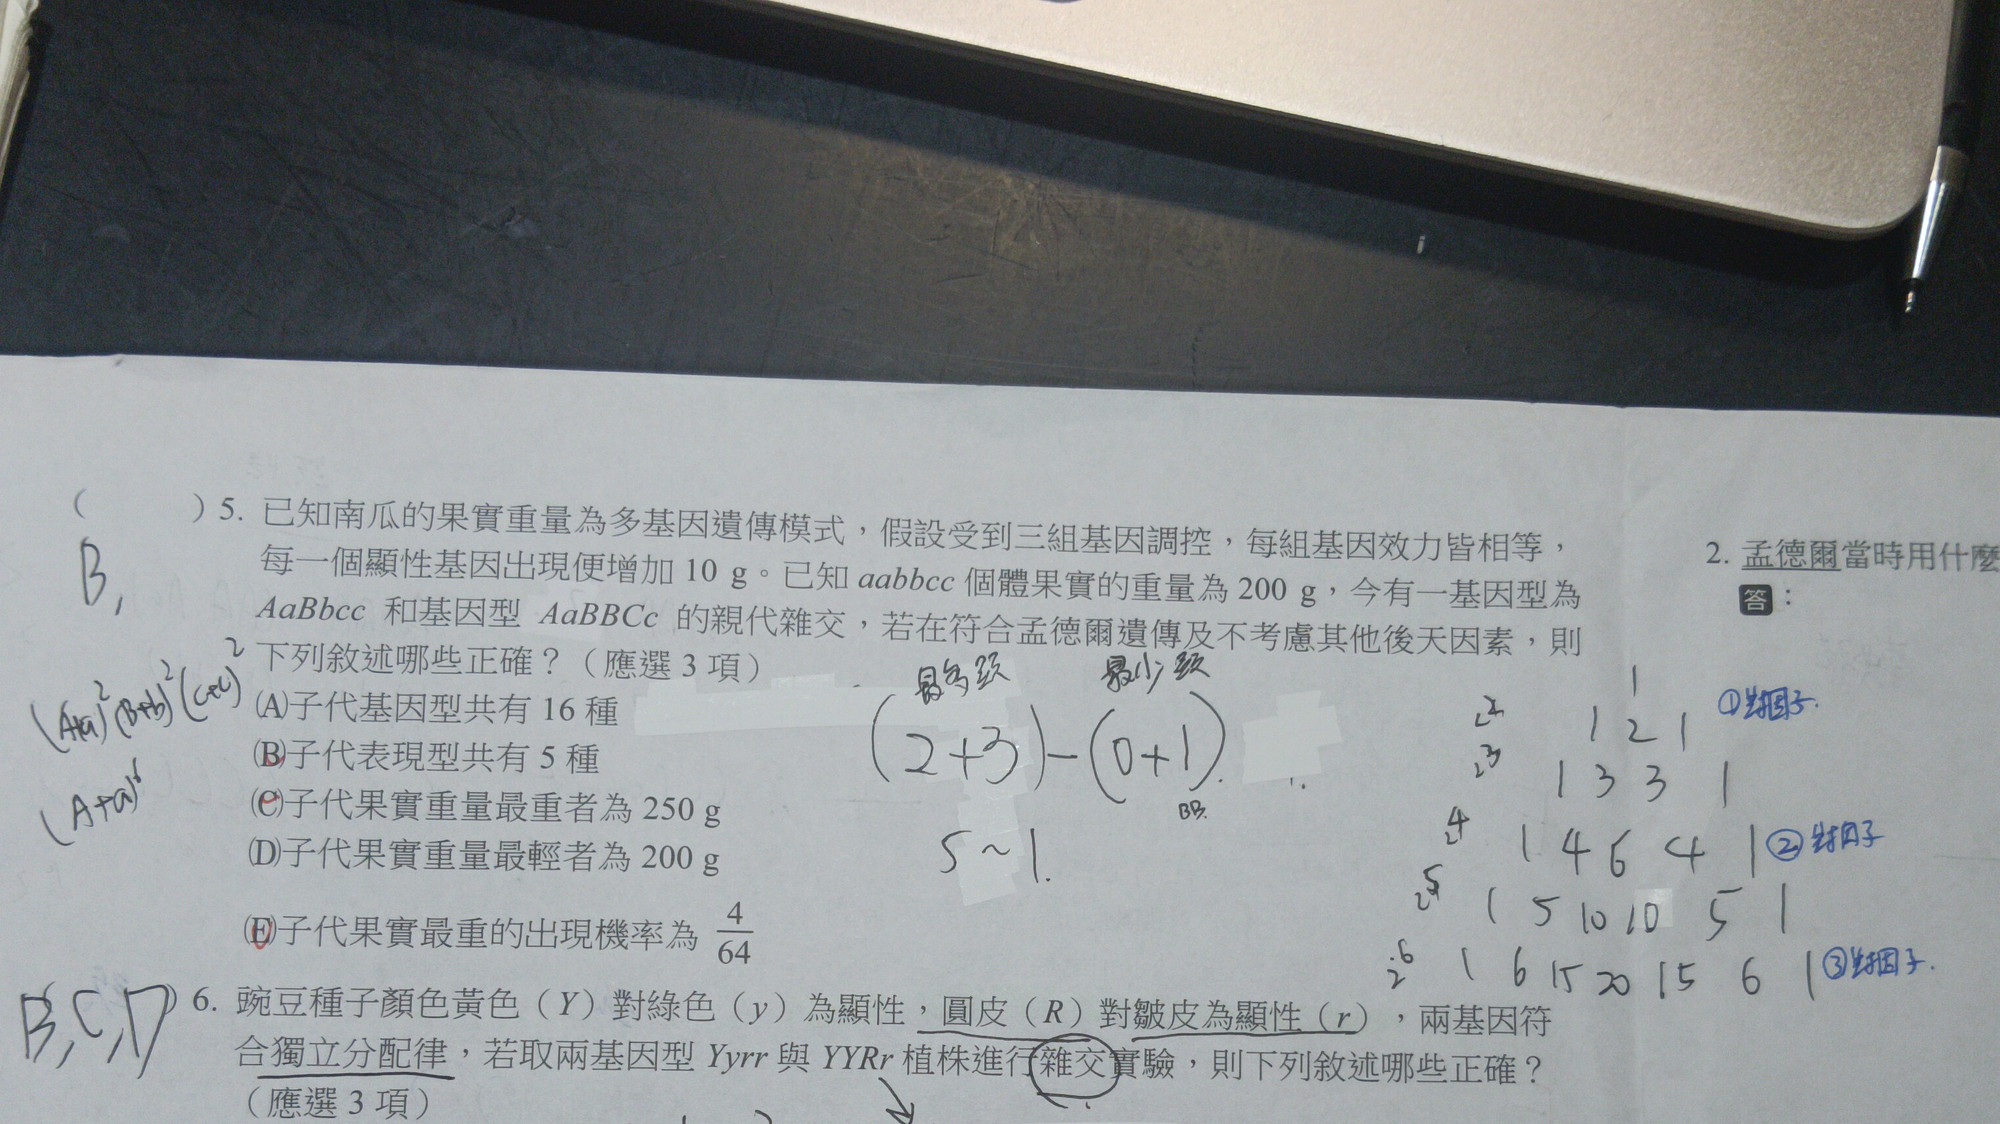 ( ) 5. 已知南瓜的果實重量為多基因遺傳模式，假設受到三組基因調控，每組基因效力皆相等，
每一個顯性基因出現便增加 10 g。已知 aabbcc 個體果實的重量為 200 g，今有一基因型為
AaBbcc 和基因型 AaBBCc 的親代雜交，若在符合孟德爾遺傳及不考慮其他後天因素，則
下列敘述哪些正確？（應選 3 項）
(A)子代基因型共有 16 種
(B)子代表現型共有 5 種
(C)子代果實重量最重者為 250 g
(D)子代果實重量最輕者為 200 g
(E)子代果實最重的出現機率為 4/64
B,
(A+a)² (B+b)² (C+c)²
(A+a)⁶
最多顯 最少顯
(2+3)-(0+1).
BB.
5~1.
1
2² 1 2 1 ①對因子.
2³ 1 3 3 1
2⁴ 1 4 6 4 1 ②對因子
2⁵ 1 5 10 10 5 1
2⁶ 1 6 15 20 15 6 1 ③對因子.
B,C,D
) 6. 豌豆種子顏色黃色（Y）對綠色（y）為顯性，圓皮（R）對皺皮為顯性（r），兩基因符
合獨立分配律，若取兩基因型 Yyrr 與 YYRr 植株進行雜交實驗，則下列敘述哪些正確？
（應選 3 項）
2. 孟德爾當時用什麼
答：